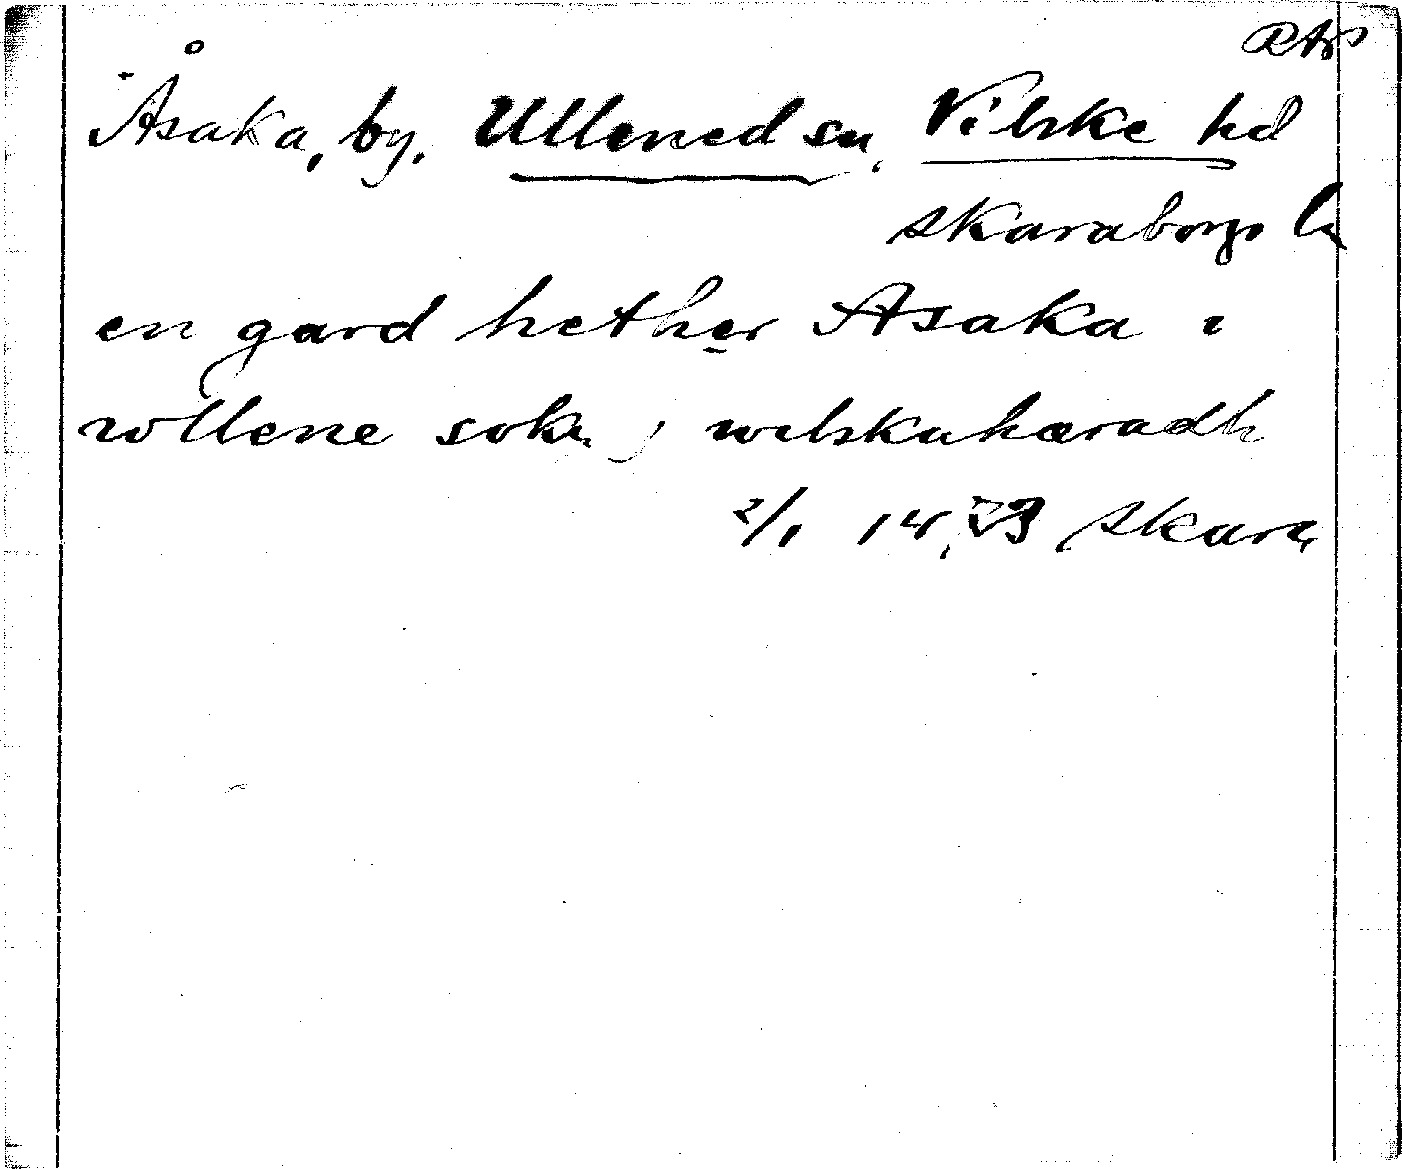 RAp
Åsaka, by. Ullened sn, Vilske hd
Skaraborgs ln
en gard hether Asaka i
wllene sokn j wilskuhæradh
2/1 14 Skara